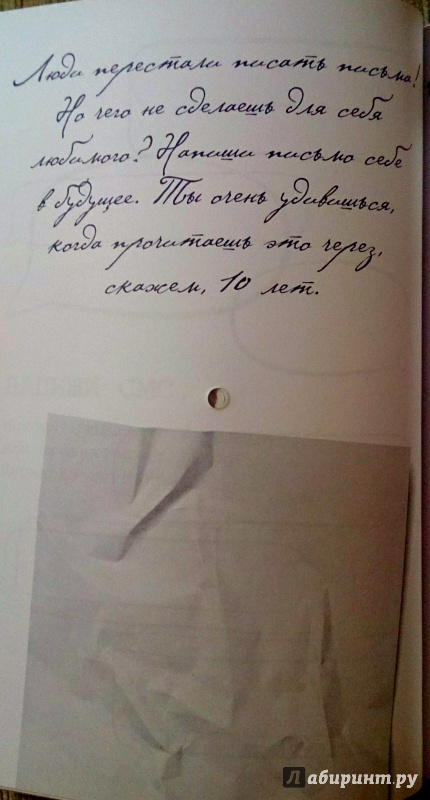 Люди перестали писать письма!
Но чего не сделаешь для себя
любимого? Напиши письмо себе
в будущее. Ты очень удивишься,
когда прочитаешь это через,
скажем, 10 лет.
Лабиринт.ру